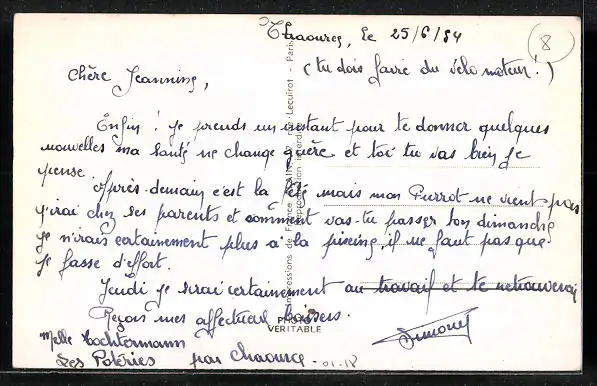 Chaource, le 25/6/54
8
Chère Jeannine,
(tu dois faire du vélo moteur!)
Enfin! je prends un instant pour te donner quelques
nouvelles ma santé ne change guère et toi tu vas bien je
pense.
Après-demain c'est la fête mais mon Pierrot ne vient pas
j'irai chez ses parents et comment vas-tu passer ton dimanche
je n'irais certainement plus à la piscine, il ne faut pas que
je fasse d'effort.
Jeudi je serai certainement au travail et te retrouverai
Reçois mes affectueux baisers.
Simone
PHOTO
VERITABLE
Melle
Les Poteries par Chaource